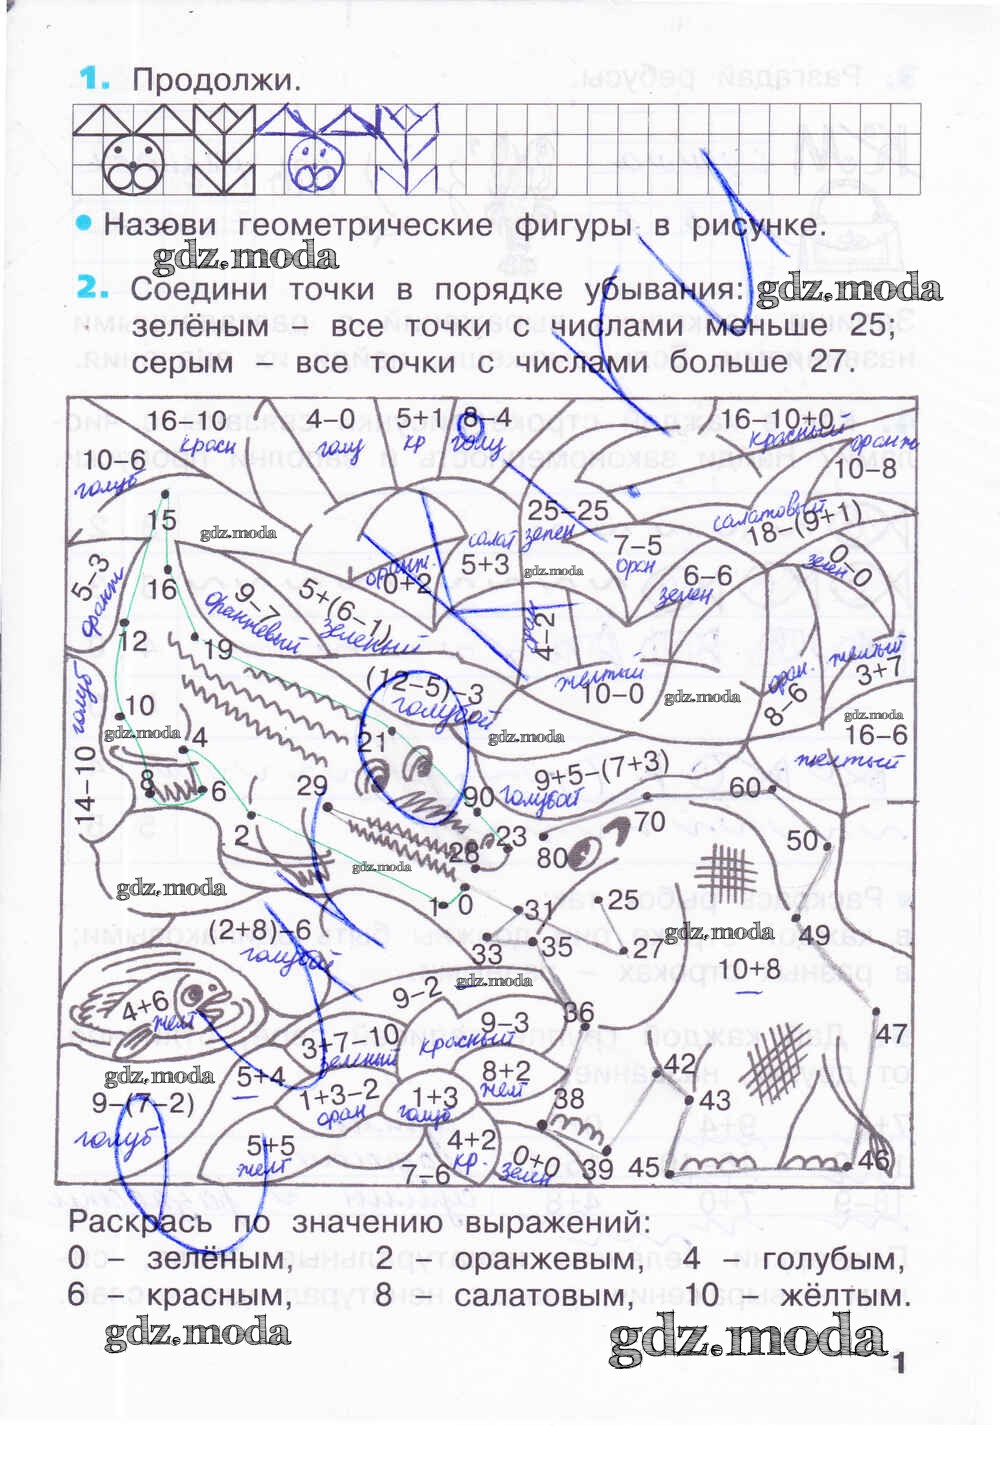 1. Продолжи.
• Назови геометрические фигуры в рисунке.
gdz.moda
2. Соедини точки в порядке убывания:
gdz.moda
зелёным – все точки с числами меньше 25;
серым – все точки с числами больше 27.
16–10 4–0 5+1 8–4 16–10+0
красн голу кр голу красный оранж
10–6 10–8
голуб
15 25–25 салатовый 18–(9+1)
gdz.moda салат зелен 7–5 0–0
5–3 16 оранж. 0+2 5+3 gdz.moda оран 6–6 зелен
оранж 9–7 5+(6–1) зелен
12 оранжевый зеленый 4–2 желтый
19 оран 3+7
(12–5)–3 желтый 10–0 gdz.moda оран. 8–6
голуб 10 голубой gdz.moda
gdz.moda 4 21 gdz.moda 16–6
14–10 9+5–(7+3) желтый
8 6 29 90 голубой 60
2 23 70 50
28 80
gdz.moda gdz.moda
1 0 31 25
(2+8)–6 33 35 27 gdz.moda 49
голубой gdz.moda 10+8
4+6 9–2
желт 3+7–10 9–3 36 47
зеленый красный
gdz.moda 5+4 8+2 42
9–(7–2) 1+3–2 1+3 желт 38 43
голуб оран голуб
5+5 4+2 0+0
желт кр. зелен
7–6 39 45 46
Раскрась по значению выражений:
0 – зелёным, 2 – оранжевым, 4 – голубым,
6 – красным, 8 – салатовым, 10 – жёлтым.
gdz.moda gdz.moda
1